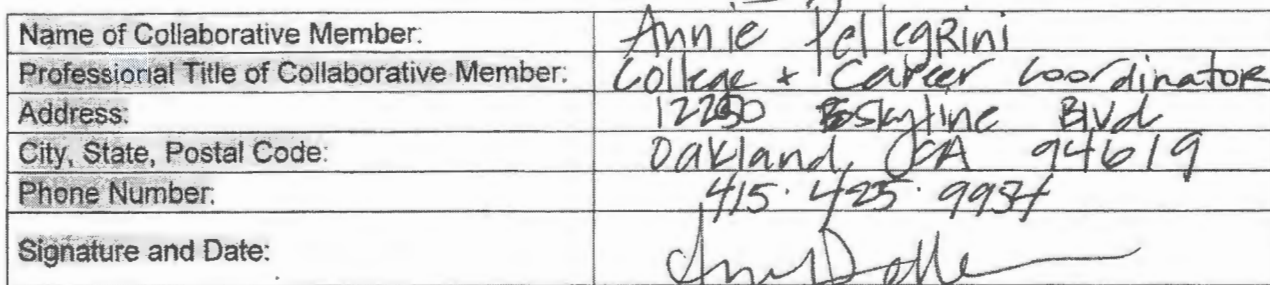 Name of Collaborative Member: Annie Pellegrini
Professional Title of Collaborative Member: College + Career Coordinator
Address: 12250 Skyline Blvd
City, State, Postal Code: Oakland, CA 94619
Phone Number: 415. 425. 9954
Signature and Date: